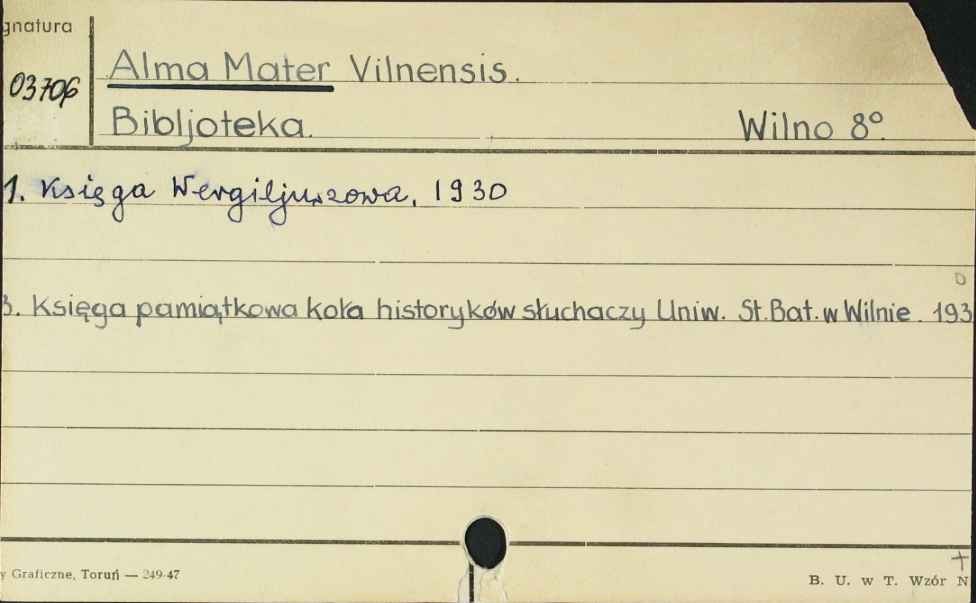 gnatura
03706
Alma Mater Vilnensis.
Bibljoteka. Wilno 8°.
1. Księga Wergiljuszowa, 1930
3. Księga pamiątkowa koła historyków słuchaczy Uniw. St. Bat. w Wilnie. 193
y Graficzne, Toruń — 249-47
B. U. w T. Wzór N